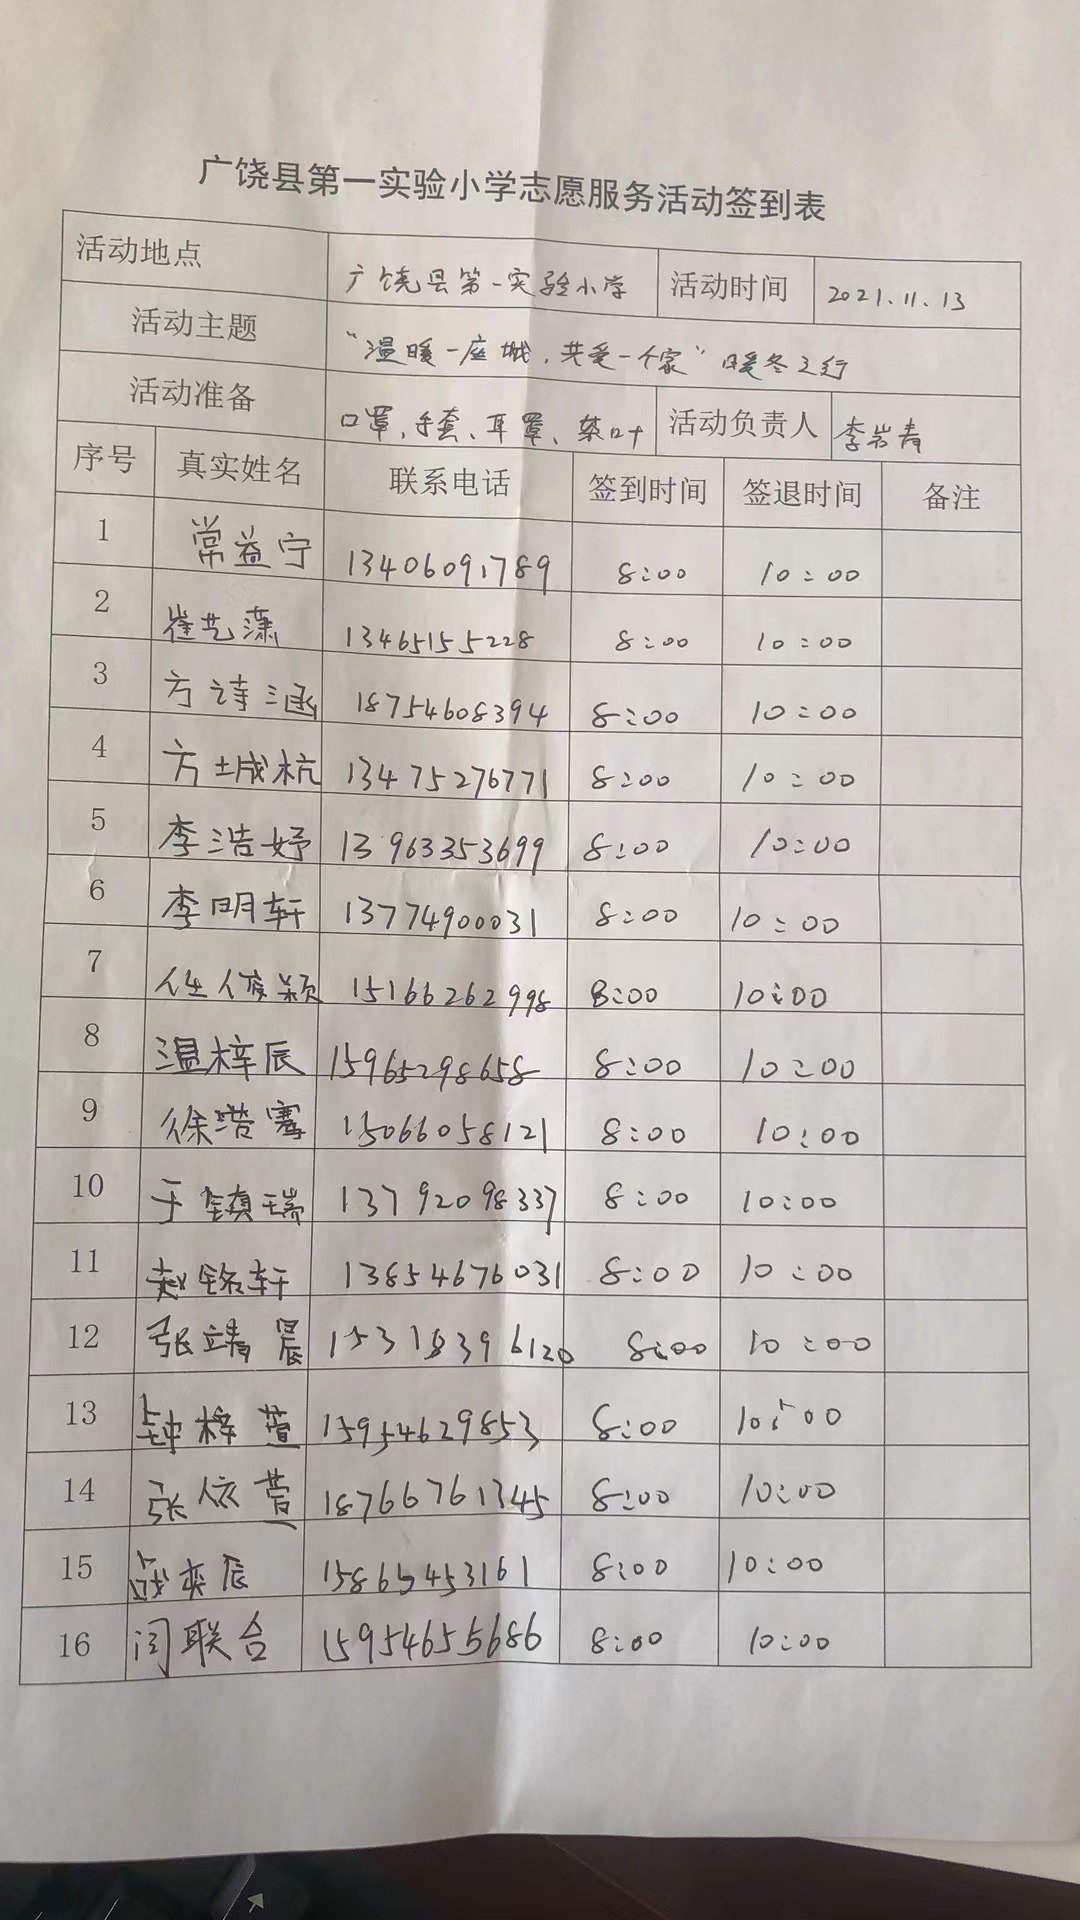 广饶县第一实验小学志愿服务活动签到表
活动地点 广饶县第一实验小学 活动时间 2021.11.13
活动主题 “温暖一座城，共爱一个家”暖冬之行
活动准备 口罩、手套、耳罩、 活动负责人 李岩青
序号 真实姓名 联系电话 签到时间 签退时间 备注
1 常益宁 13406091789 8:00 10:00
2 崔艺潇 13465155228 8:00 10:00
3 方诗涵 18754608394 8:00 10:00
4 方城杭 13475276771 8:00 10:00
5 李浩妤 13963353699 8:00 10:00
6 李明轩 13774900031 8:00 10:00
7 任俊颖 15166262998 8:00 10:00
8 温梓辰 15965298658 8:00 10:00
9 徐浩骞 15066058121 8:00 10:00
10 于镇瑞 13792098337 8:00 10:00
11 赵铭轩 13854676031 8:00 10:00
12 张靖晨 15318396120 8:00 10:00
13 钟梓萱 15954629853 8:00 10:00
14 张依萱 18766761345 8:00 10:00
15 战奕辰 15865453161 8:00 10:00
16 闫联合 15954655686 8:00 10:00